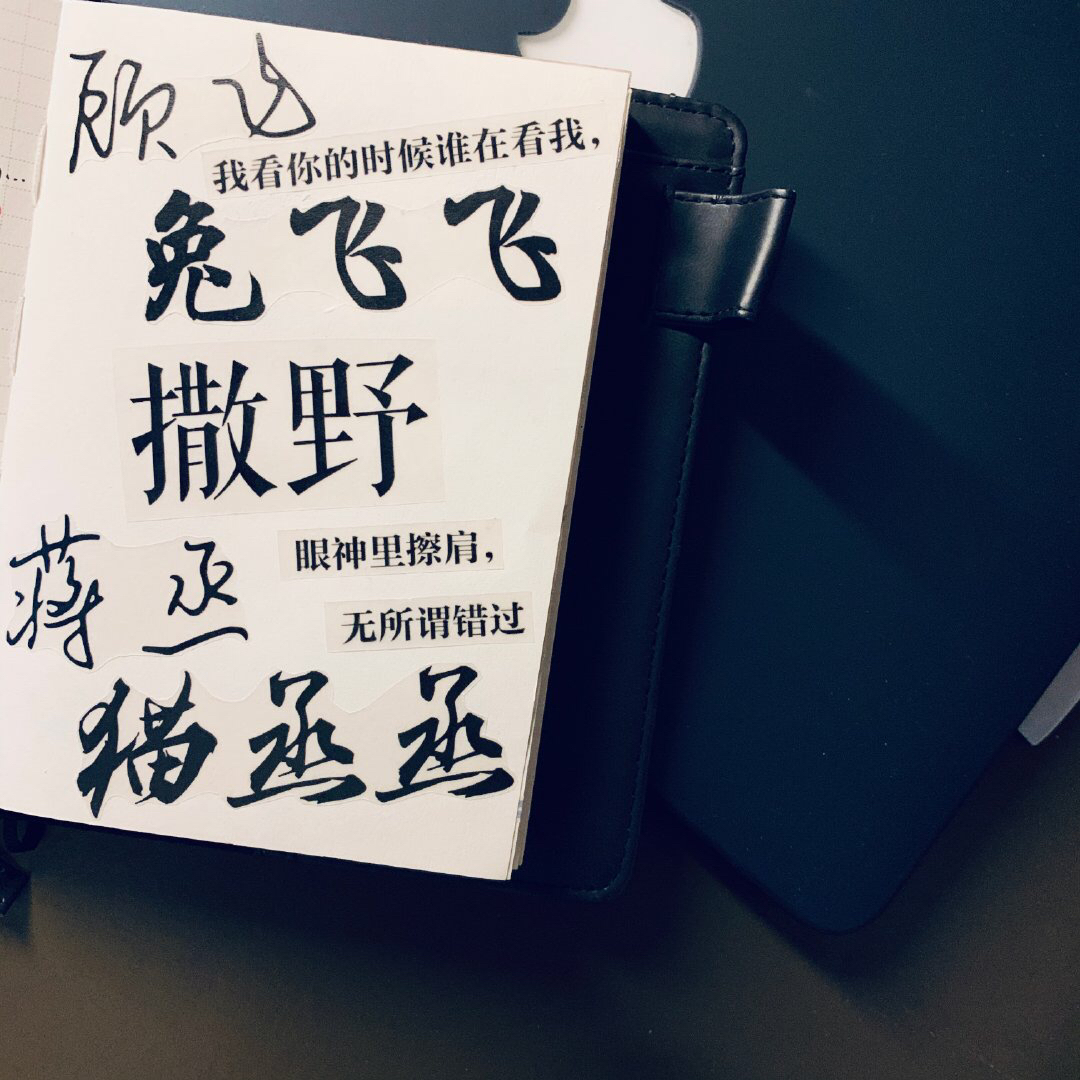 顾飞
我看你的时候谁在看我,
兔飞飞
撒野
蒋丞
眼神里擦肩,
无所谓错过
猫丞丞